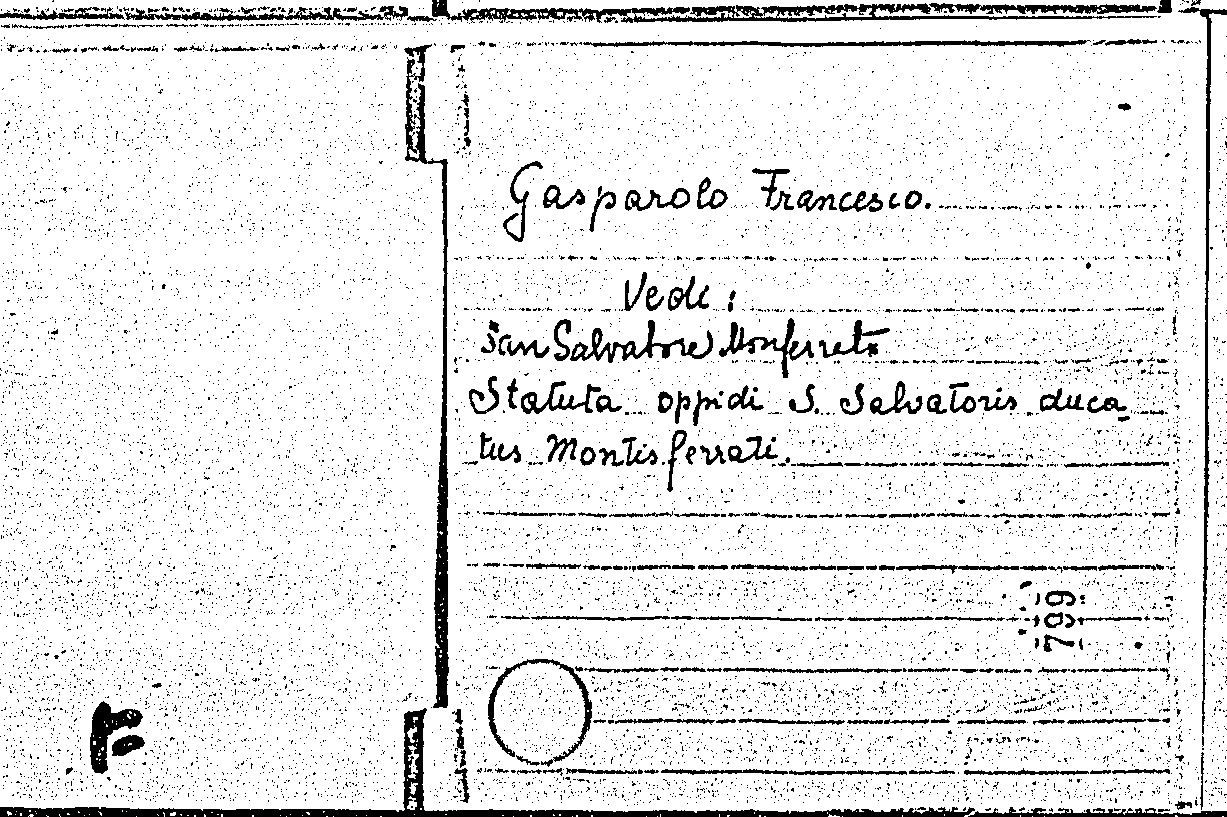 Gasparolo Francesco.
Vedi:
San Salvatore Monferrato
Statuta oppidi S. Salvatoris duca
tus Montisferrati.
799